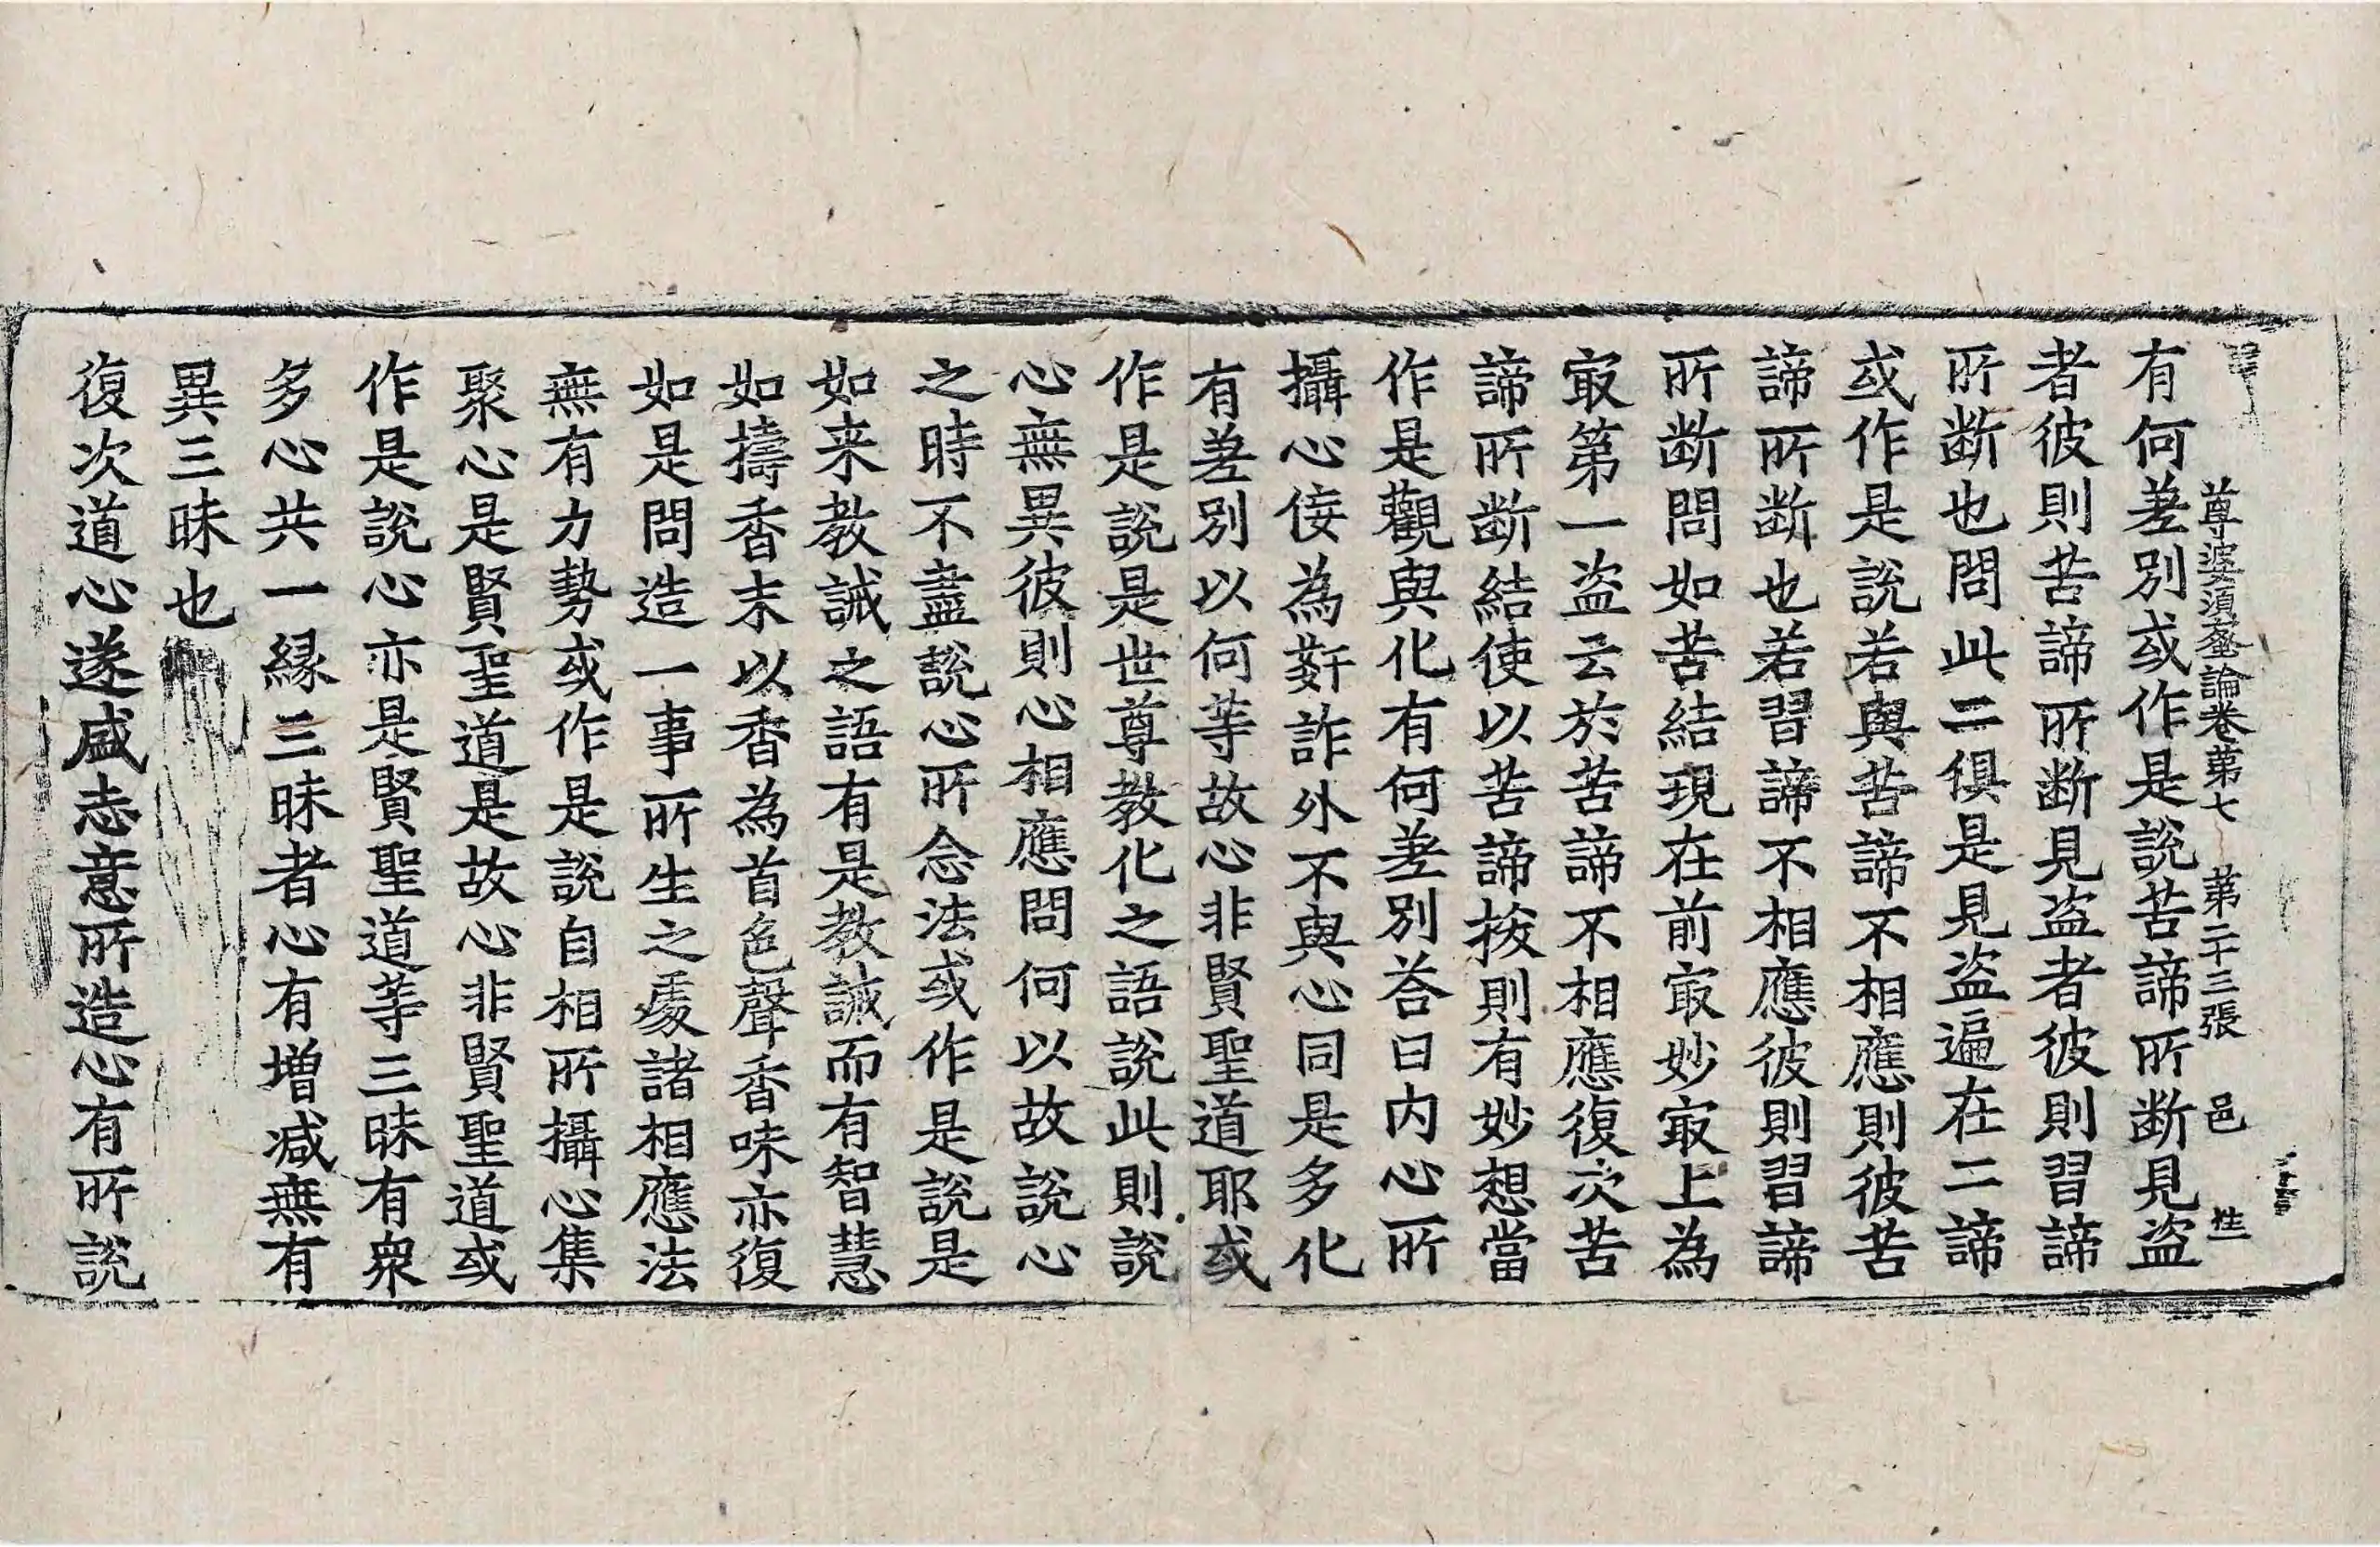 尊婆須蜜論卷第七　第二十三張　邑
有何差別或作是說苦諦所断見盗
者彼則苦諦所断見盗者彼則習諦
所断也問此二俱是見盗遍在二諦
或作是說若與苦諦不相應則彼苦
諦所断也若習諦不相應彼則習諦
所断問如苦結現在前㝡妙㝡上為
㝡第一盗云於苦諦不相應復次苦
諦所断結使以苦諦拔則有妙想當
作是觀與化有何差別荅曰内心所
攝心侫為姧詐外不與心同是多化
有差別以何等故心非賢聖道耶或
作是說是世尊教化之語說此則說
心無異彼則心相應問何以故說心
之時不盡說心所念法或作是說是
如来教誡之語有是教誡而有智慧
如擣香末以香為首色聲香味亦復
如是問造一事所生之處諸相應法
無有力勢或作是說自相所攝心集
聚心是賢聖道是故心非賢聖道或
作是說心亦是賢聖道等三昧有衆
多心共一縁三昧者心有増减無有
異三昧也
復次道心遂盛志意所造心有所說